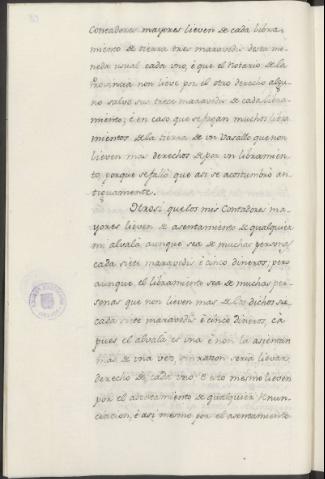 Contadores mayores lieven de cada libra-
miento de tierra tres maravedis desta mo-
neda usual cada uno, é que el Notario de la
Provincia non lieve por el otro derecho algu-
no salvo sus trece maravedis de cada libra-
miento; é en caso que se fagan muchos libra-
mientos de la tierra de un Vasallo que non
lieven mas derechos de por un libramien-
to, porque se falló que asi se acostumbró an-
tiguamente.
Otrosi que los mis Contadores ma-
yores lieven de asentamiento de qualquier
mi alvala aunque sea de muchas personas
cada siete maravedis é cinco dineros; pero
aunque el libramiento sea de muchas per-
sonas que non lieven mas de los dichos
cada siete maravedis é cinco dineros, cá
pues el alvala es una é non la asientan
mas de una vez, sin razon seria llevar
derecho de cada uno. E eso mesmo lieven
por el asentamiento de qualquier renun-
ciacion, é asi mesmo por el asentamiento